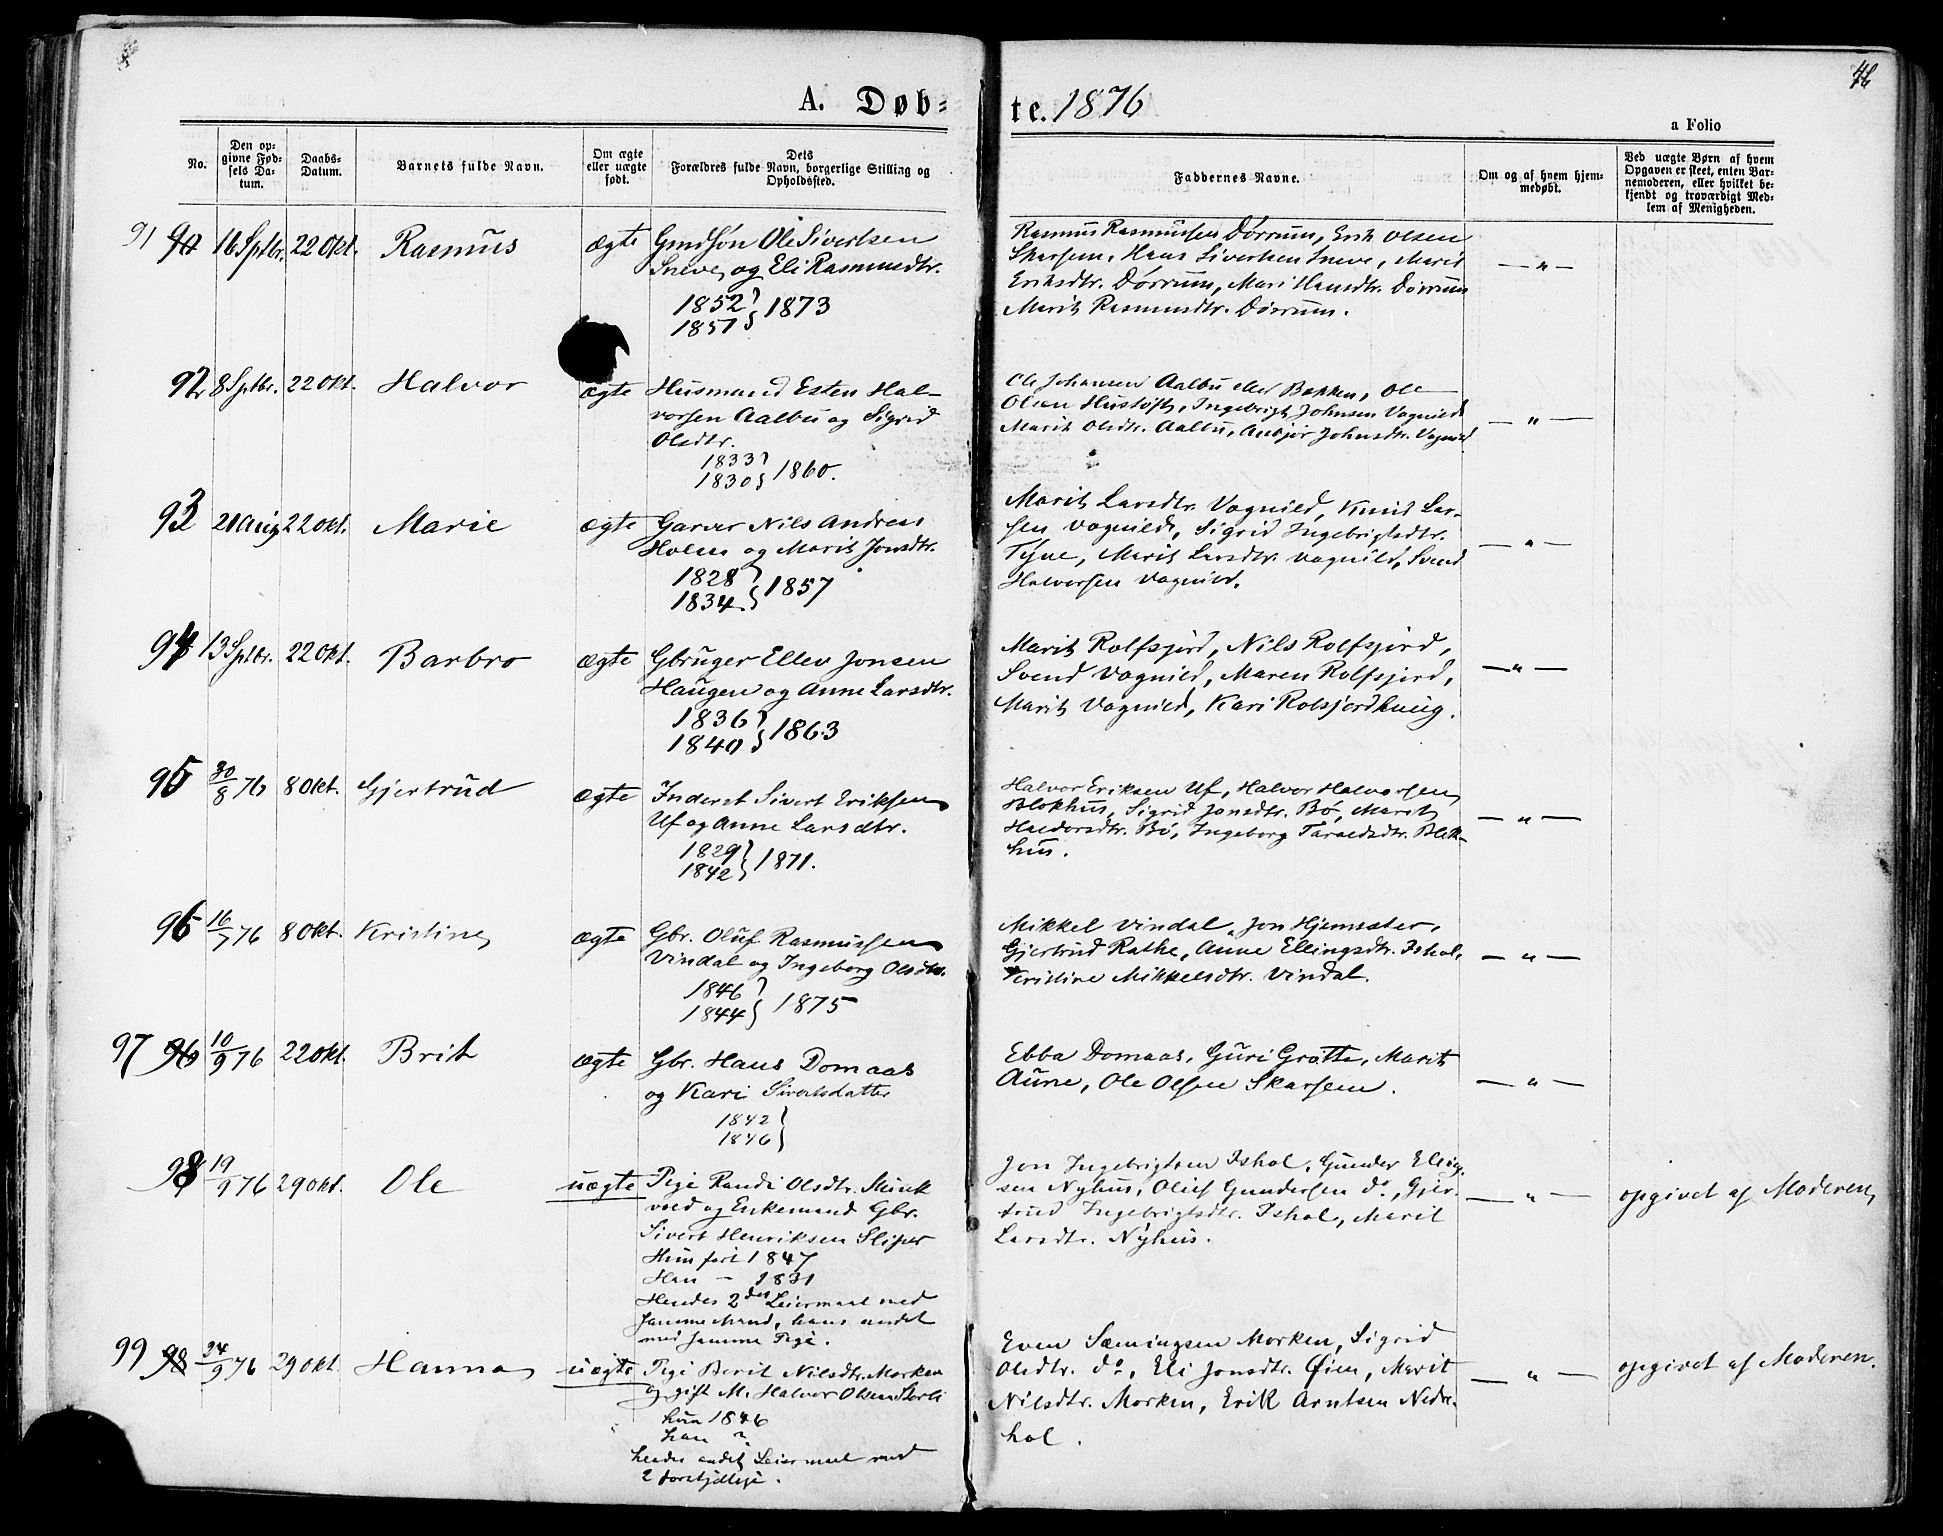 46
A. Døb=
te. 1876
a Folio
No.
Den op-
givne Fød-
sels Da-
tum.
Daabs-
Datum.
Barnets fulde Navn.
Om ægte
eller uægte
født.
Dets
Forældres fulde Navn, borgerlige Stilling og
Opholdssted.
Faddernes Navne.
Om og af hvem hjem-
medøbt.
Ved uægte Børn af hvem
Opgaven er skeet, enten Bar-
nemoderen, eller hvilket be-
kjendt og troværdigt Med-
lem af Menigheden.
91 90 16 Septbr. 22 Okt. Rasmus ægte Gmdsøn Ole Sivertsen
Sneve, og Eli Rasmusdtr.
1852
1851 } 1873
Rasmus Rasmussen Dørrum, Erik Olsen
Skarsem, Hans Sivertsen Sneve, Marit
Eriksdtr. Dørrum, Mari Hansdtr. Dørrum
Marit Rasmusdtr. Dørrum.
— " —
92 8 Septbr. 22 Okt. Halvor ægte Husmand Esten Hal-
vorsen Aalbu og Sigrid
Olsdtr.
1833
1830 } 1860.
Ole Johansen Aalbu eller Bakken, Ole
Olsen Hustoft, Ingebrigt Johnsen Vognild
Marit Olsdtr. Aalbu, Anbjør Johnsdtr. Vognild
— " —
93 21 Aug 22 Okt. Marie ægte Garver Nils Andreas
Holm og Marit Jonsdtr.
1828
1834 } 1857
Marit Larsdtr. Vognild, Knut Lar-
sen Vognild, Sigrid Ingebrigtsdtr.
Tyne, Marit Larsdtr. Vognild, Svend
Halvorsen Vognild.
— " —
94 13 Septbr. 22 Okt. Barbro ægte Gbruger Ellev Jonsen
Haugen og Anne Larsdtr.
1836
1840 } 1863
Marit Rolfsjord, Nils Rolfsjord,
Svend Vognild, Maren Rolfsjord,
Marit Vognild, Kari Rolsjordhaug.
— " —
95 30/8 76 8 Okt. Gjertrud ægte Inderst Sivert Eriksen
Uf og Anne Larsdtr.
1829
1842 } 1871.
Halvor Eriksen Uf, Halvor Halvorsen
Blokhus, Sigrid Jonsdtr. Bø, Marit
Haldorsdtr. Bø, Ingeborg Taraldsdtr. Blek-
hus.
— " —
96 16/7 76 8 Okt. Kristine ægte Gbr. Oluf Rasmussen
Vindal og Ingeborg Olsdtr.
1846
1844 } 1875
Mikkel Vindal, Jon Hjemsæter,
Gjertrud Rathe, Anne Ellingsdtr. Ishol,
Kristine Mikkelsdtr. Vindal.
— " —
97 96 10/9 76 22 Okt. Brit ægte Gbr. Hans Domaas
og Kari Sivertsdatter
1842
1846 }
Ebba Domaas, Guri Grøtte, Marit
Aune, Ole Olsen Skarsem.
— " —
98 19/9 76 29 Okt. Ole uægte Pige Randi Olsdtr. Munk
vold og Enkemand Gbr.
Sivert Henriksen Sliper
Hun født 1847
Han — 1831
Hendes 2det Leiermaal med
samme Mand, hans andet
med samme Pige.
Jon Ingebrigtsen Ishol, Gunder Elling-
sen Nyhus, Oluf Gundersen do, Gjer-
trud Ingebrigtsdtr. Ishol, Marit
Larsdtr. Nyhus.
— " —
opgivet af Moderen
99 98 24/9 76 29 Okt. Hanna uægte Pige Berit Nilsdtr. Morken
og gift M. Halvor Olsen
hun 1846
han ?
hendes andet Leiermaal med
2 forskjellige.
Even Sæmingsen Morken, Sigrid
Olsdtr. do, Eli Jonsdtr. Øien, Marit
Nilsdtr. Morken, Erik Arntsen Nedre-
hol.
— " —
opgivet af Moderen.